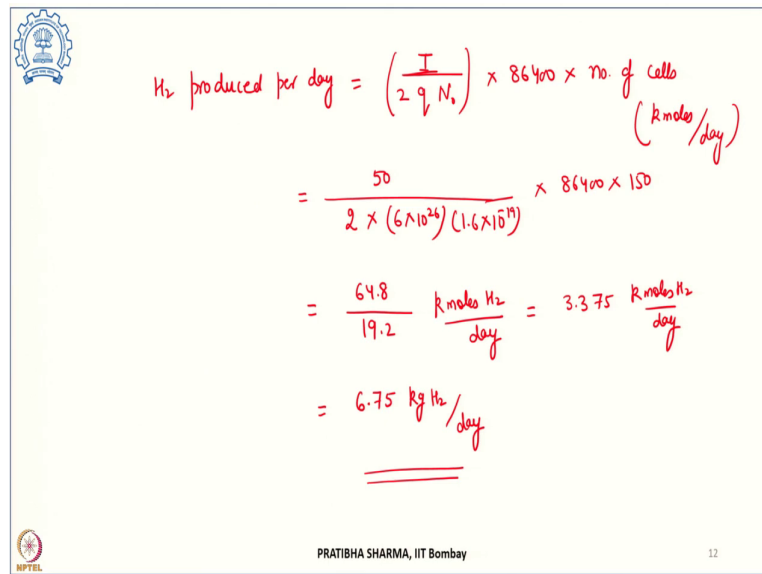 H₂ produced per day = (I / 2 q N₀) × 86400 × no. of cells
(kmoles/day)
= 50 / 2 × (6×10²⁶) (1.6×10⁻¹⁹) × 86400 × 150
= 64.8 / 19.2 kmoles H₂ / day = 3.375 kmoles H₂ / day
= 6.75 kg H₂/day
NPTEL
PRATIBHA SHARMA, IIT Bombay
12